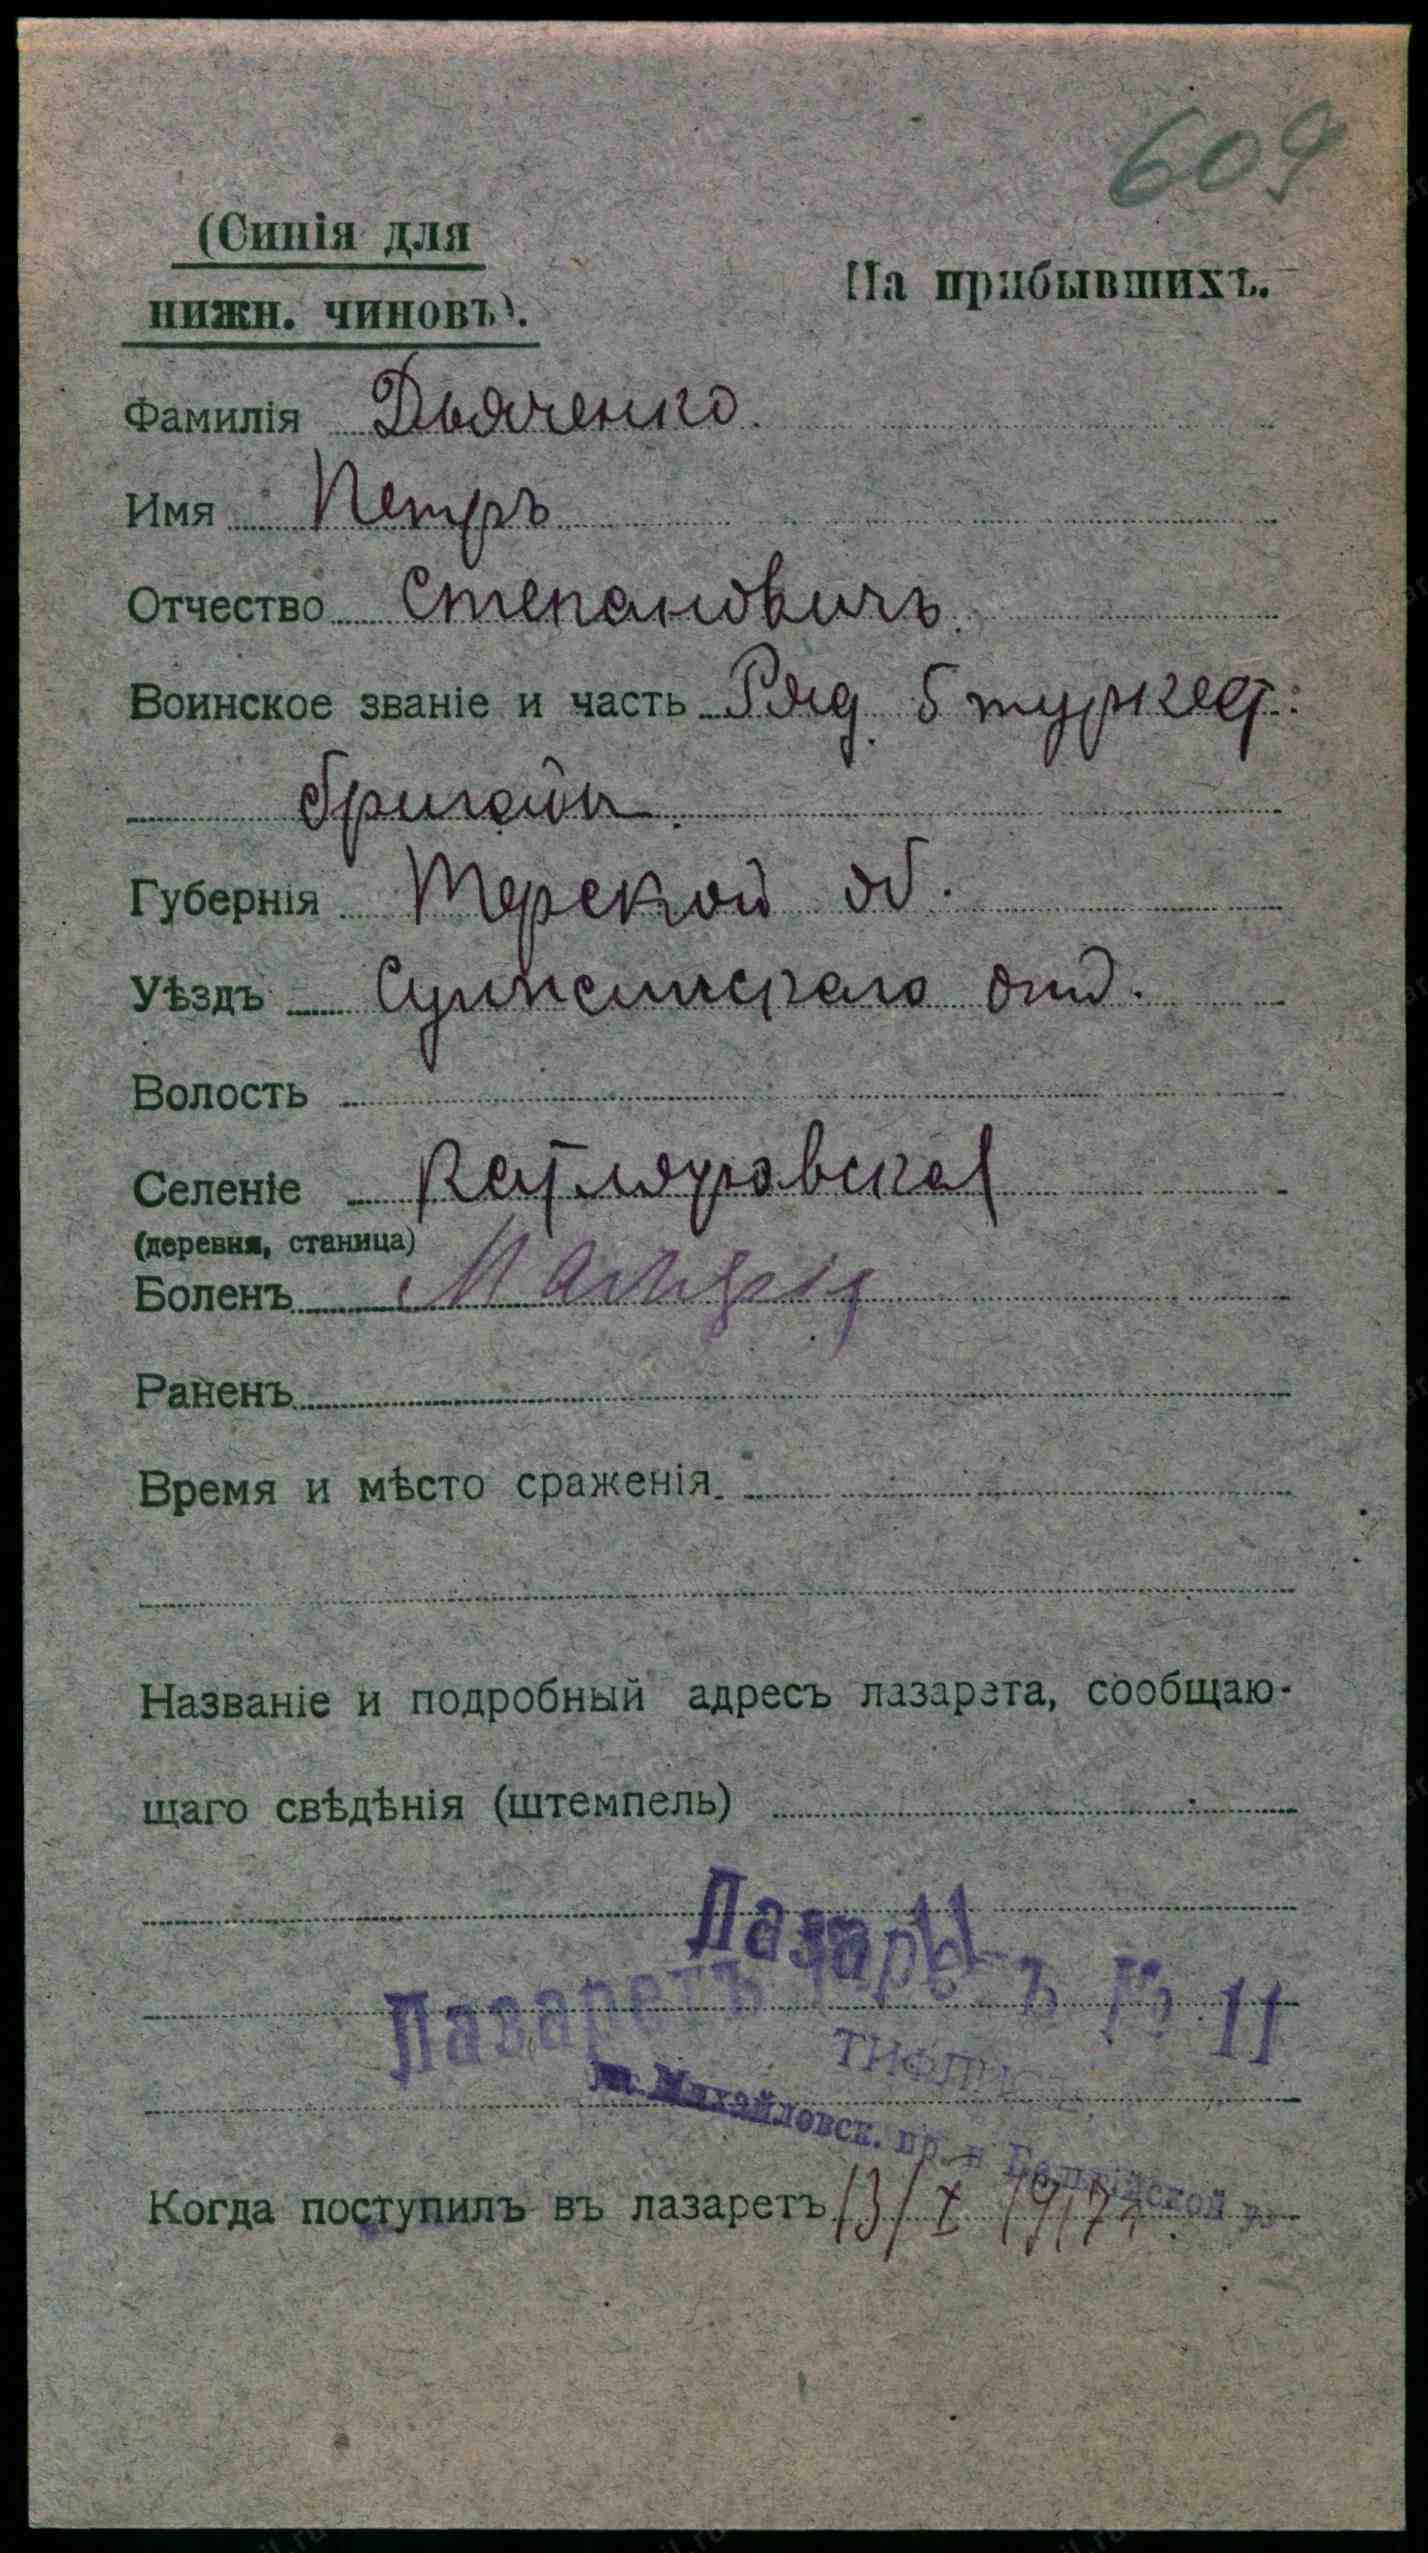 609
(Синія для
нижн. чиновъ).
На прибывшихъ.
Фамилія Дьяченко.
Имя Петръ
Отчество Степановичъ.
Воинское званіе и часть Ряд. 5 туркест:
бригады.
Губернія Терской об.
Уѣздъ Сунженскаго отд.
Волость
Селеніе Котляровская
(деревня, станица)
Боленъ Маляр
Раненъ
Время и мѣсто сраженія.
Названіе и подробный адресъ лазарета, сообщаю-
щаго свѣдѣнія (штемпель)
Лазаретъ № 11
Лазаретъ
ТИФЛИС
Михайловск. пр. и
Когда поступилъ въ лазаретъ 13/X 1917 г.